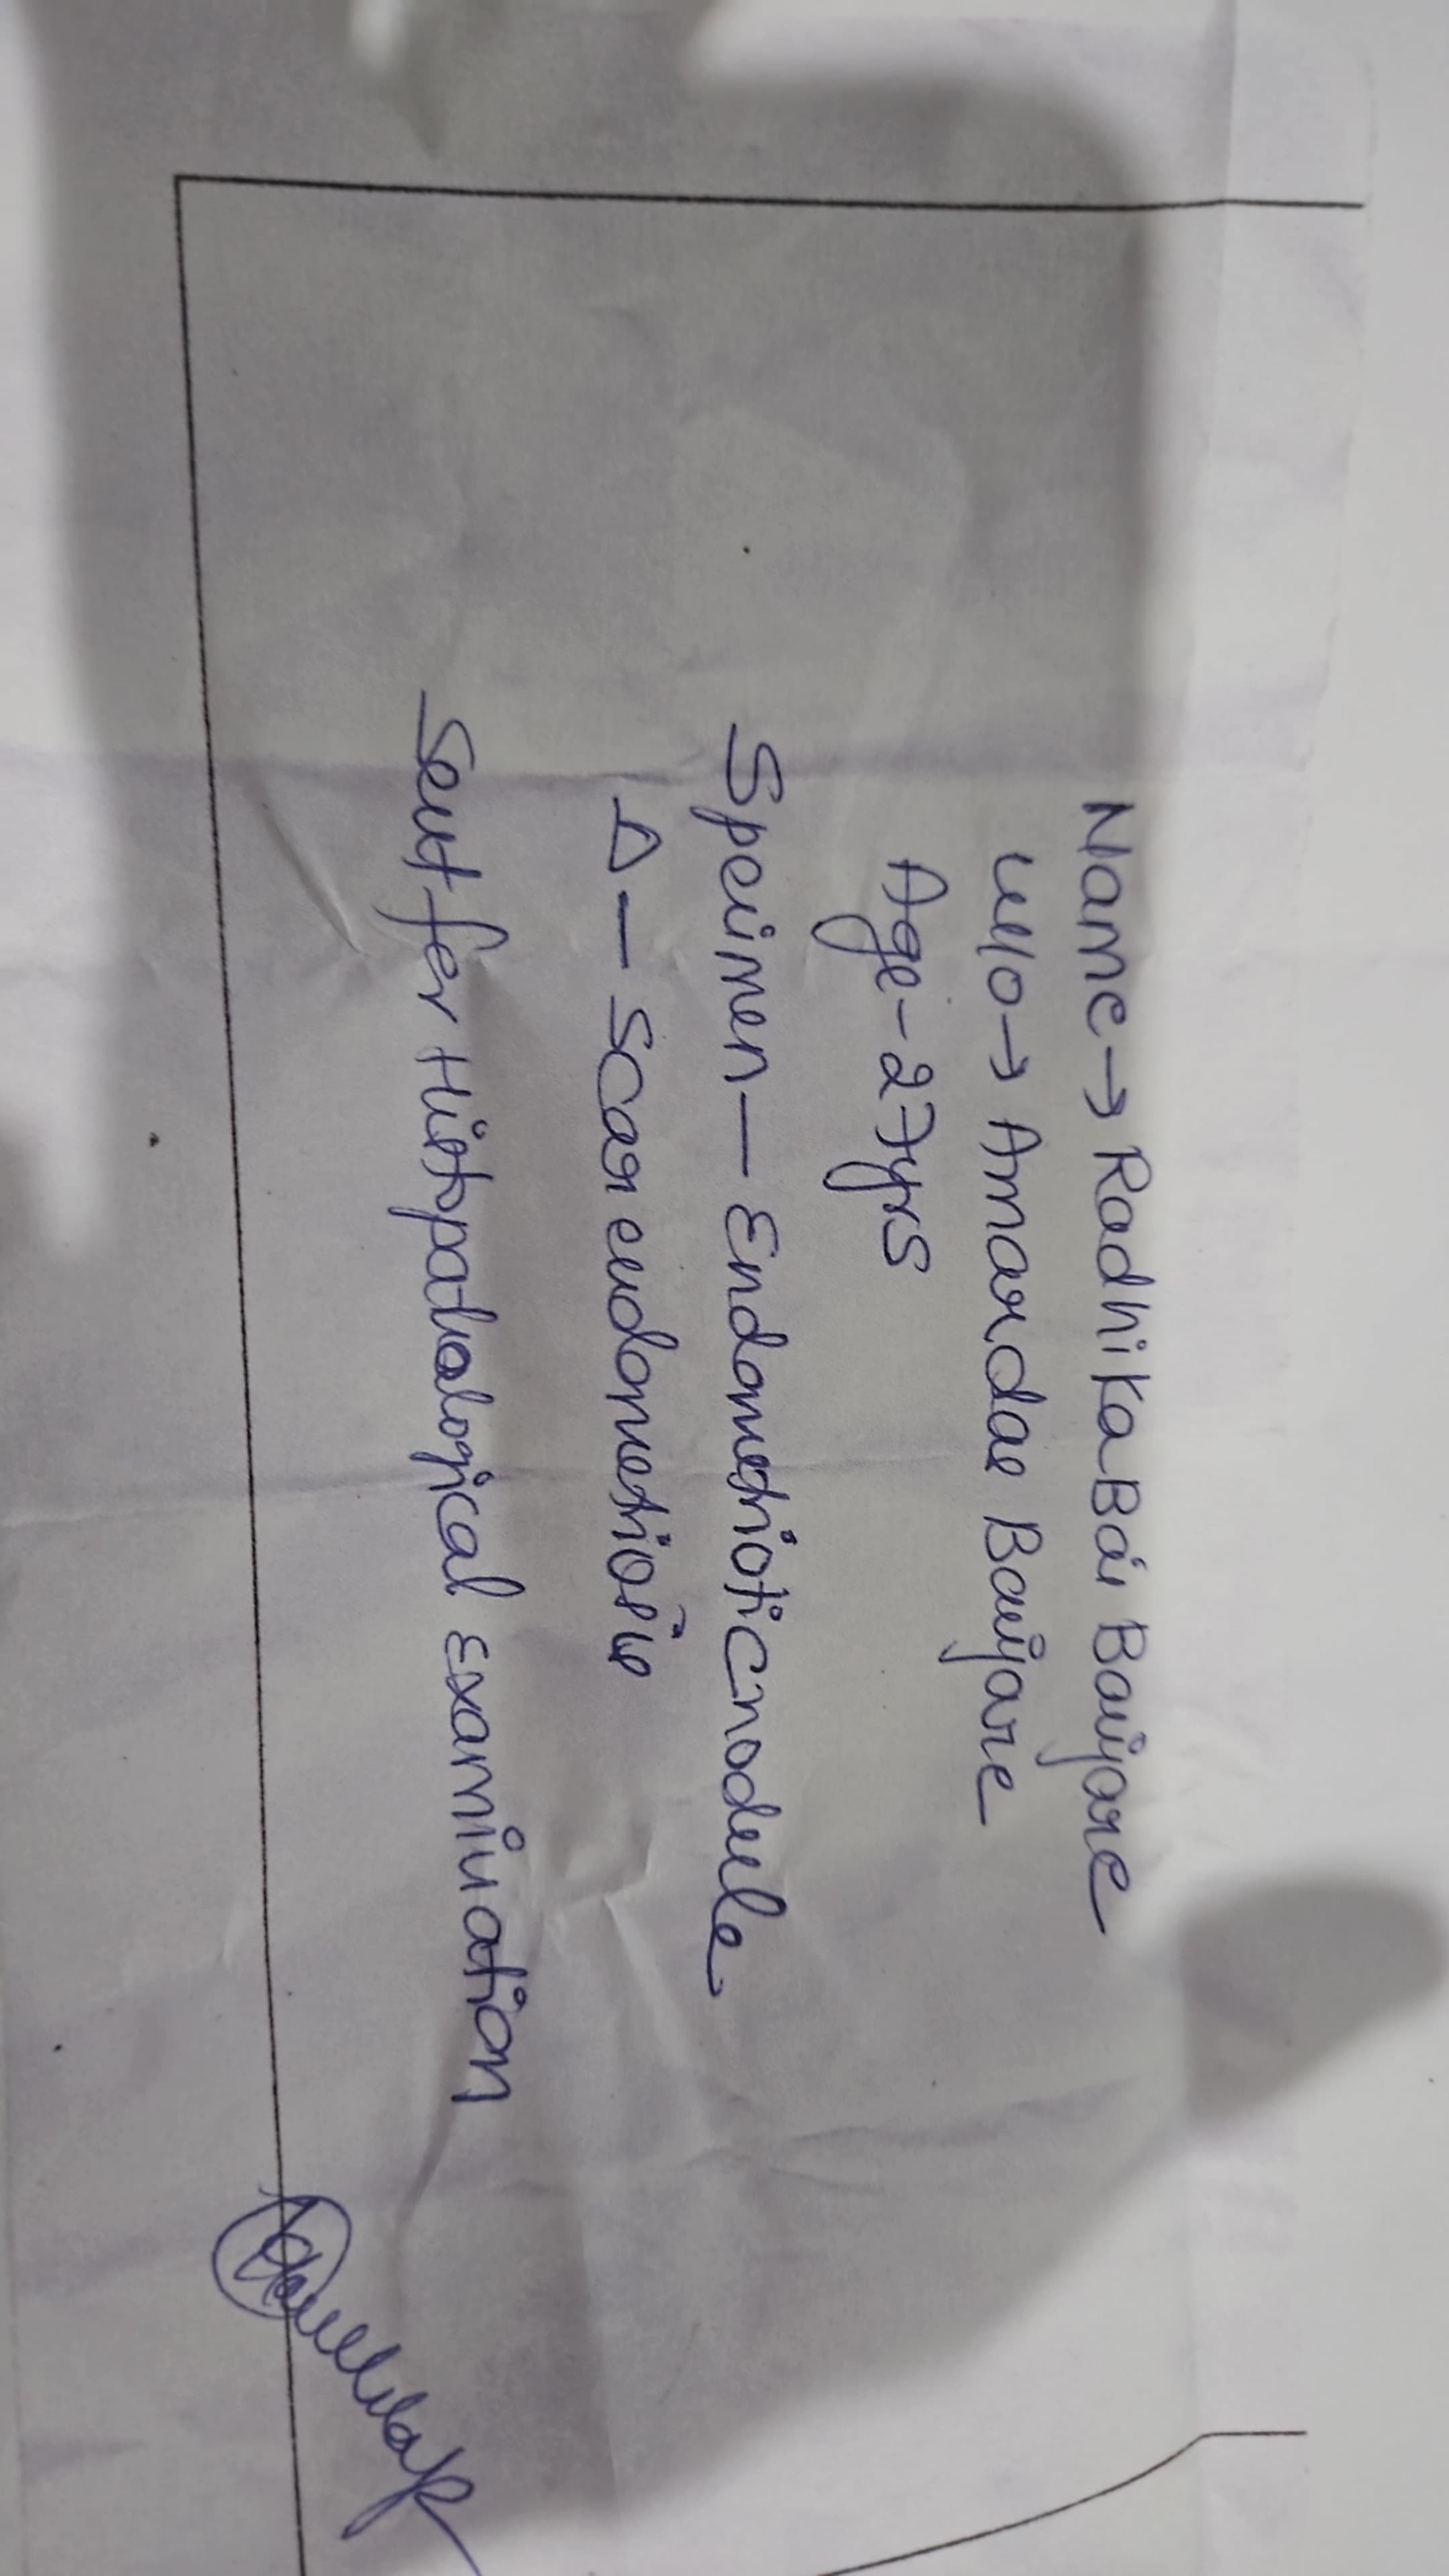 Name → Radhika Bai Banjare
W/o → Amardas Banjare
Age - 27yrs
Speimen — Endometrioticnodule
Δ — Scar endometriosis
Sent for Histopathological Examination